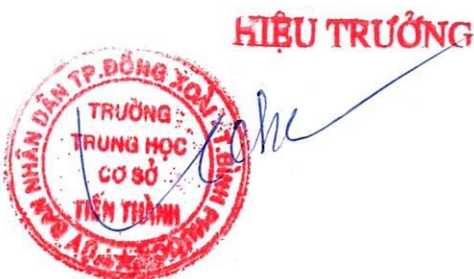 HIỆU TRƯỞNG
ỦY BAN NHÂN DÂN TP.ĐỒNG XOÀI T.BÌNH PHƯỚC
TRƯỜNG
TRUNG HỌC
CƠ SỞ
TIẾN THÀNH